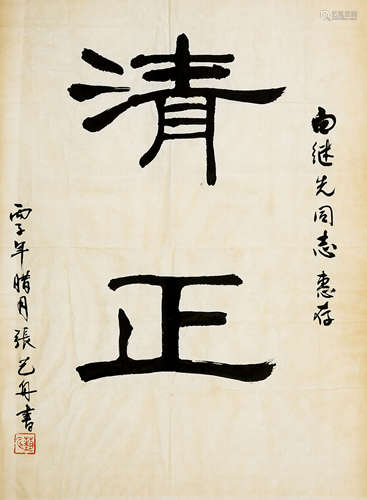 清正
由继先同志惠存
丙子年腊月張艺舟書